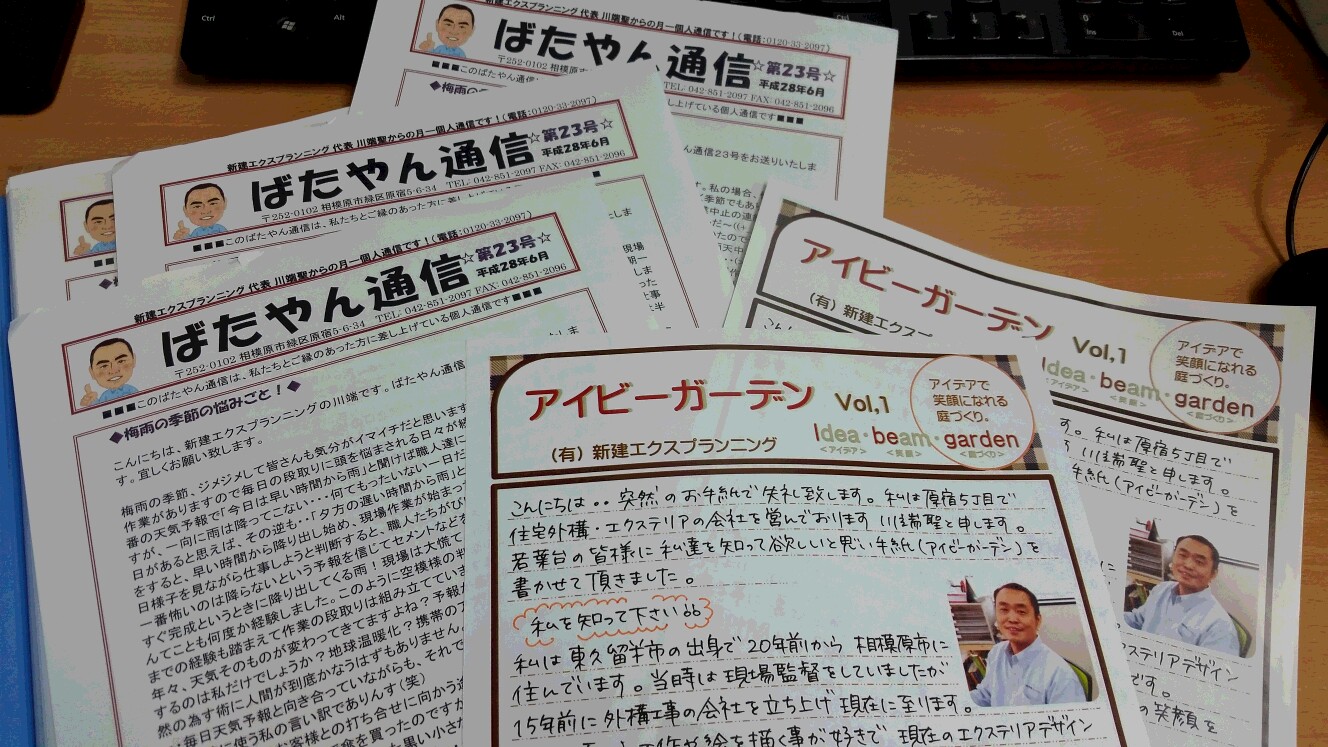 Ctrl
Alt
Ctrl
Ins
Del
新建エクスプランニング 代表 川端聖からの月一個人通信です!(電話:0120-33-2097)
ばたやん通信
☆第23号☆
平成28年6月
〒252-0102 相模原市
TEL: 042-851-2097 FAX: 042-851-2096
■■■このばたやん通信
し上げている個人通信です■■■
◆梅雨の
ん通信23号をお送りいたしま
す。私の場合、
新建エクスプランニング 代表 川端聖からの月一個人通信です!(電話:0120-33-2097)
ばたやん通信
☆第23号☆
平成28年6月
〒252-0102 相模原市緑区原宿5-6-34 TEL: 042-851-2097 FAX: 042-851-2096
■■■このばたやん通信は、私たちとご縁のあった方に差し上げ
新建エクスプランニング 代表 川端聖からの月一個人通信です!(電話:0120-33-2097)
ばたやん通信
☆第23号☆
平成28年6月
〒252-0102 相模原市緑区原宿5-6-34 TEL: 042-851-2097 FAX: 042-851-2096
■■■このばたやん通信は、私たちとご縁のあった方に差し上げている個人通信です■■■
◆梅雨の季節の悩みごと!◆
こんにちは、新建エクスプランニングの川端です。ばたやん通信
す。宜しくお願い致します。
梅雨の季節、ジメジメして皆さんも気分がイマイチだと思います
作業がありますので毎日の段取りに頭を悩まされる日々が続
番の天気予報で「今日は早い時間から雨」と聞けば職人達に
すが、一向に雨は降ってこない・・・・何てもったいない一日だ
日があると思えば、その逆も・・「夕方の遅い時間から雨」と
をすると、早い時間から降り出し始め、現場作業が始まっ
日様子を見ながら仕事しようと判断すると、職人たちがび
一番怖いのは降らないという予報を信じてセメントなどを
すぐ完成というときに降り出してくる雨!現場は大慌て
んてことも何度か経験しました。このように空模様の判
までの経験も踏まえて作業の段取りは組み立てていま
年々、天気そのものが変わってきてますよね?予報
するのは私だけでしょうか?地球温暖化?携帯の
然の為す術に人間が到底かなうはずもありません
・・毎日天気予報と向き合っていながらも、それで
に使う私の言い訳でありんす(笑)
お客様との打ち合せに向かう途
傘を買ったのですが
アイビーガーデン Vol,1
(有)新建エクスプランニング
アイデアで
笑顔になれる
庭づくり。
Idea・beam・garden
<アイデア> <笑顔> <庭づくり>
こんにちは・・突然のお手紙で失礼致します。私は原宿5丁目で
住宅外構・エクステリアの会社を営んでおります 川端聖と申します。
若葉台の皆様に私達を知って欲しいと思い手紙(アイビーガーデン)を
書かせて頂きました。
私を知って下さい
私は東久留米市の出身で20年前から相模原市に
住んでいます。当時は現場監督をしていましたが
15年前に外構工事の会社を立ち上げ現在に至ります。
作や絵を描く事が好きで 現在のエクステリアデザイン
アイビーガーデン Vol,1
(有)新建エクス
アイデアで
笑顔になれる
庭づくり。
Idea・beam・garden
<アイデア> <笑顔> <庭づくり>
す。私は原宿5丁目で
川端聖と申します。
手紙(アイビーガーデン)を
ステリアデザイン
です。
の笑顔を